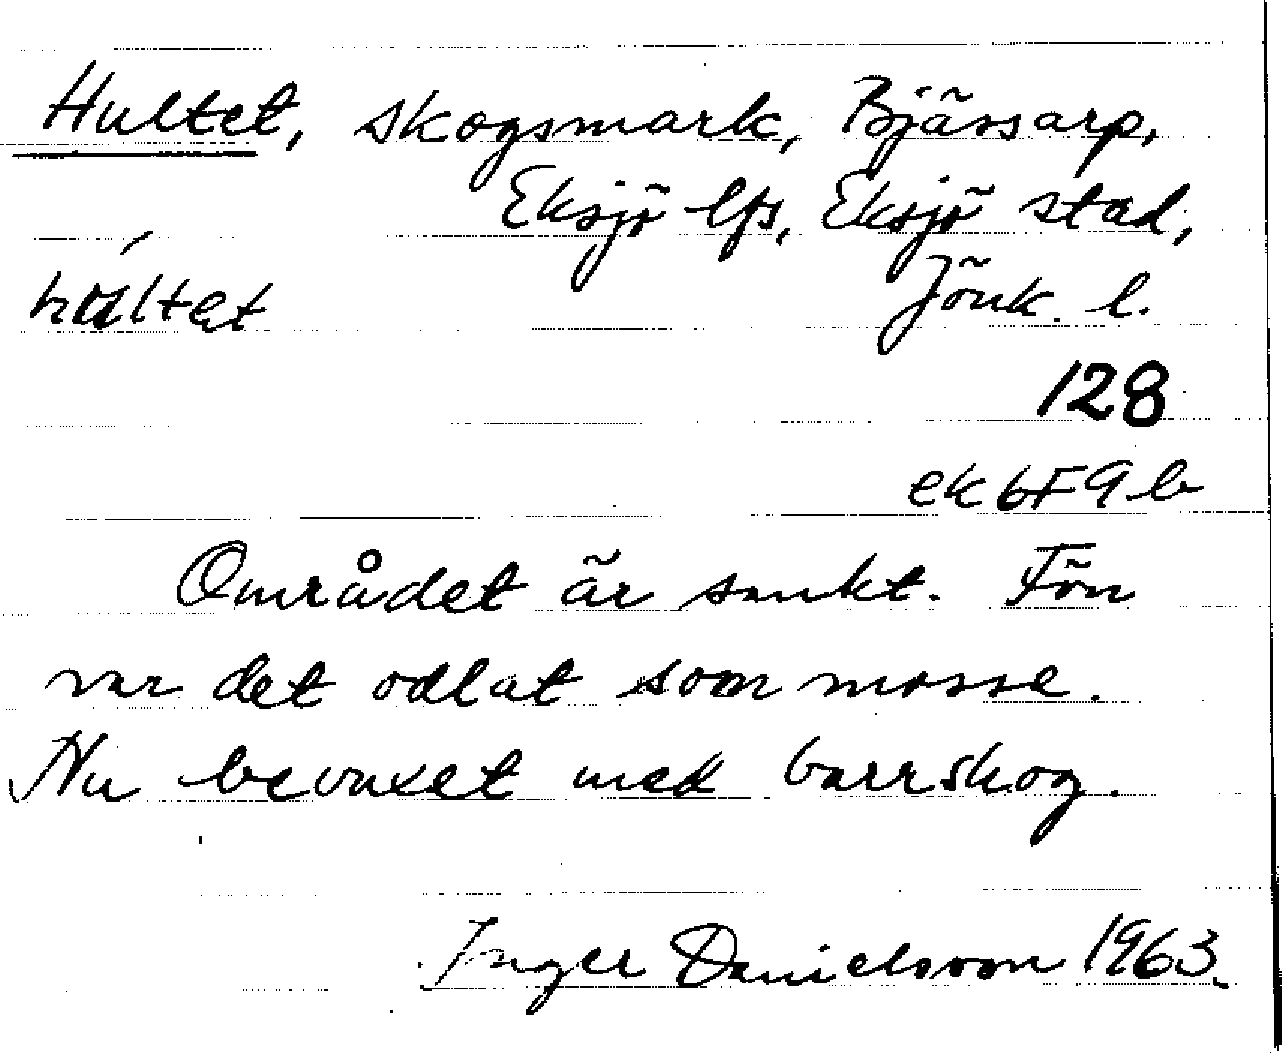 Hultet, skogsmark, Bjässarp,
Eksjö lfs, Eksjö stad,
húltet Jönk. l.
128
ek 6F9b
Området är sankt. Förr
var det odlat som mosse.
Nu bevuxet med barrskog.
Inger Danielsson 1963.